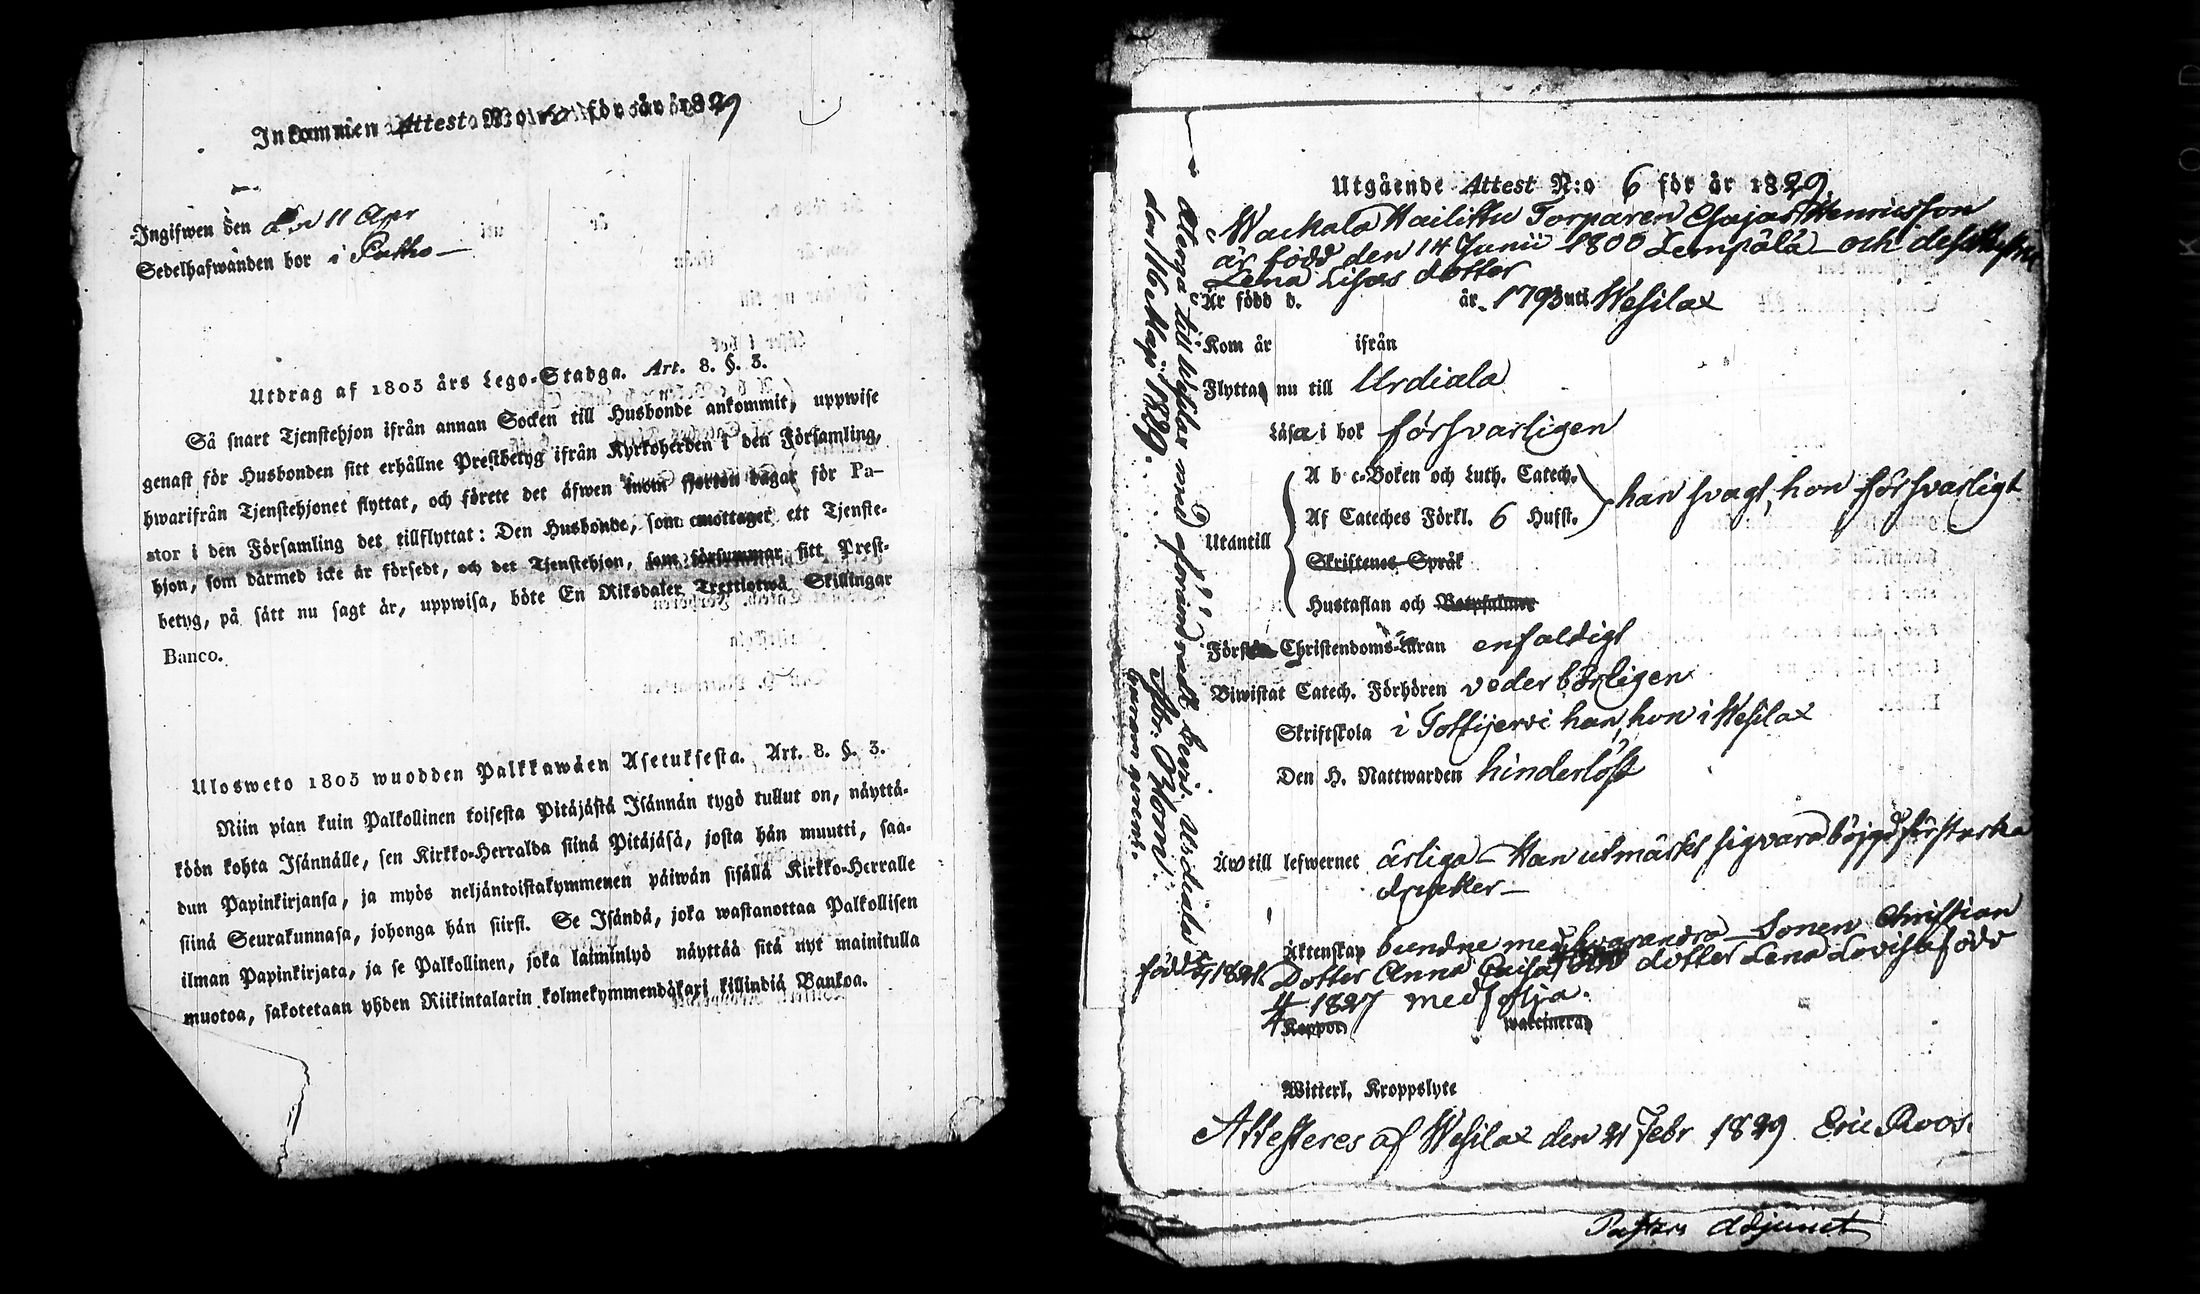 Inkommen Attest N:o för år 1829
Ingifwen den den 11 Apr
Sedelhafwanden bor i
Utdrag af 1805 års Lego-Stadga. Art. 8. §. 3.
Så snart Tjenstehjon ifrån annan Socken till Husbonde ankommit, uppwise
genast för Husbonden sitt erhållne Prestbetyg ifrån Kyrkoherden i den Församling,
hwarifrån Tjenstehjonet flyttat, och förete det äfwen inom fjorton dagar för Pa-
stor i den Församling det tillflyttat: Den Husbonde, som emottager ett Tjenste-
hjon, som därmed icke är försedt, och det Tjenstehjon, som försummar sitt Prest-
betyg, på sätt nu sagt är, uppwisa, böte En Riksdaler Trettiotwå Skillingar
Banco.
Ulosweto 1805 wuodden Palkkawäen Asetuksesta. Art. 8. §. 3.
Niin pian kuin Palkollinen toisesta Pitäjästä Isännän tygö tullut on, näyttä-
köön kohta Isännälle, sen Kirkko-Herralda siinä Pitäjäsä, josta hän muutti, saa-
dun Papinkirjansa, ja myös neljäntoistakymmenen päiwän sisällä Kirkko-Herralle
siinä Seurakunnasa, johonga hän siirsi. Se Isändä, joka wastanottaa Palkollisen
ilman Papinkirjata, ja se Palkollinen, joka laiminlyö näyttää sitä nyt mainitulla
muotoa, sakotetaan yhden Riikintalarin kolmekymmendäkaxi killindiä Bankoa.
Utgående Attest N:o 6 för år 1829.
Torparen Esajas Henricsson
är född den 14 Junii 1800 Lempälä och
Lena Lisas dotter
Är född d. år 1793 uti Wesilax
Kom år ifrån
Flyttar nu till Urdiala
Läsa i bok försvarligen
A b c-Boken och Luth. Catech.
Af Cateches Förkl. 6 Hufst. han svagt, hon försvarligt
Utantill
Skriftenes Språk
Hustaflan och Botpsalmer
Förstår Christendoms-Läran enfaldigt
Biwistat Catech. Förhören vederbörligen
Skriftskola i Tottijervi han, hon i Wesilax
Den H. Nattwarden hinderlöst
Är till lefwernet ärliga Han utmärkt sig vara böjgd för starka
drycker
Äktenskap bundne med hvarandra Sonen Christian
född 1821. Dotter Anna Caisa dotter Lena Lovisa född
4/4 1827 medfölja.
Koppor waccinerad
Witterl. Kroppslyte
Attesteres af Wesilax den 21 Febr 1829 Eric Roos.
Pastors Adjunct
Återgå till Wesilax med oförändradt bevis. Urdiala
den 16 Maji 1829.